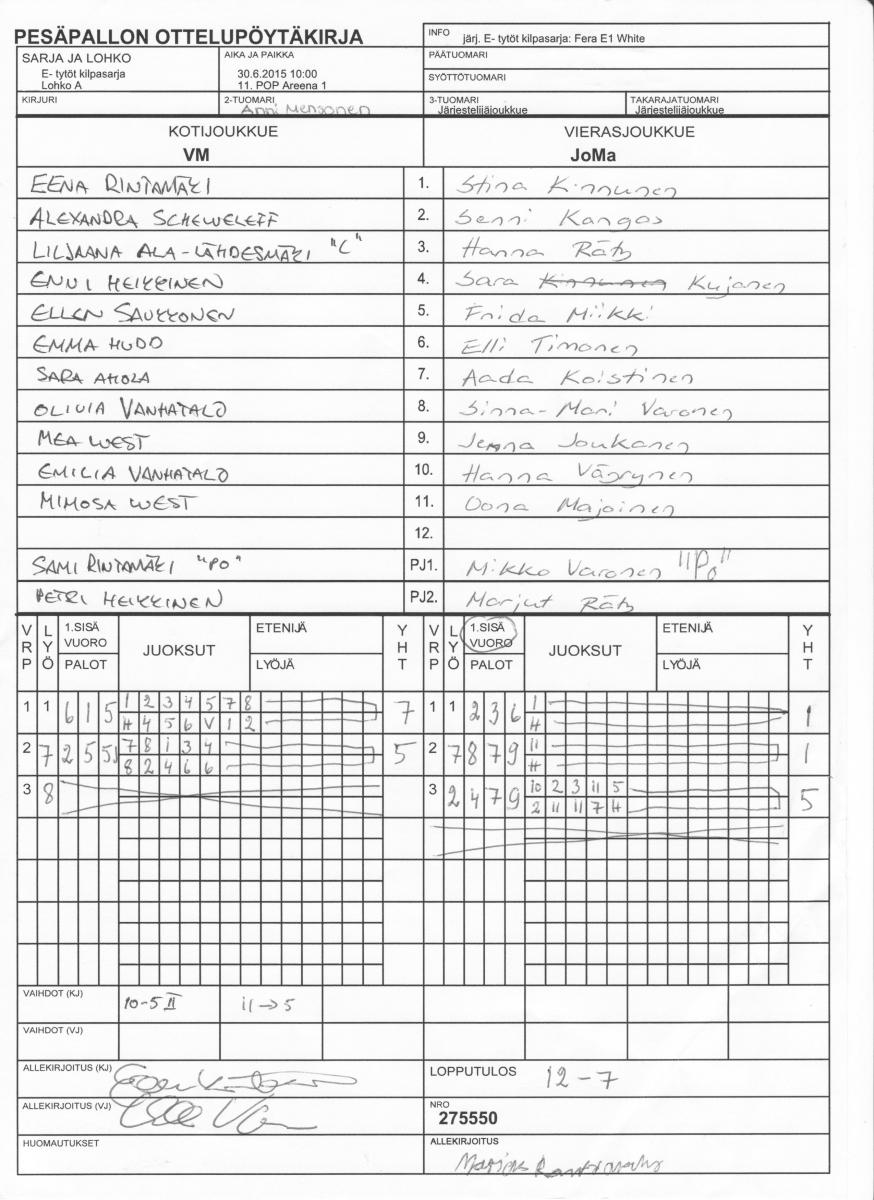 PESÄPALLON OTTELUPÖYTÄKIRJA
INFO järj. E- tytöt kilpasarja: Fera E1 White
SARJA JA LOHKO
E- tytöt kilpasarja
Lohko A
AIKA JA PAIKKA
30.6.2015 10:00
11. POP Areena 1
PÄÄTUOMARI
SYÖTTÖTUOMARI
KIRJURI
2-TUOMARI Anni Mensonen
3-TUOMARI
Järjestelijäjoukkue
TAKARAJATUOMARI
Järjestelijäjoukkue
KOTIJOUKKUE VIERASJOUKKUE
VM JoMa
EENA RINTAMÄKI 1. Stina Kinnunen
ALEXANDRA SCHEWELEFF 2. Senni Kangas
LILJAANA ALA-LÄHDESMÄKI "C" 3. Hanna Räty
ENNI HEIKKINEN 4. Sara Kinnunen Kujanen
ELLEN SAUKKONEN 5. Frida Miikki
EMMA HUDD 6. Elli Timonen
SARA AHOLA 7. Aada Koistinen
OLIVIA VANHATALO 8. Sinna-Mari Varonen
MEA WEST 9. Jenna Joukanen
EMILIA VANHATALO 10. Hanna Väyrynen
MIMOSA WEST 11. Oona Majoinen
12.
SAMI RINTAMÄKI "PO" PJ1. Mikko Varonen "Po"
PETRI HEIKKINEN PJ2. Marjut Räty
VRP LYÖ 1.SISÄ VUORO PALOT JUOKSUT ETENIJÄ LYÖJÄ YHT VRP LYÖ 1.SISÄ VUORO PALOT JUOKSUT ETENIJÄ LYÖJÄ YHT
1 1 6 1 5 1 2 3 4 5 7 8 7 1 1 2 3 6 1 1
H 4 5 6 V 1 2 H
2 7 2 5 5 7 8 1 3 4 5 2 7 8 7 9 11 1
8 2 4 6 6 H
3 8 3 2 4 7 9 10 2 3 11 5 5
2 11 11 7 H
VAIHDOT (KJ) 10-5 II 11→5
VAIHDOT (VJ)
ALLEKIRJOITUS (KJ)
LOPPUTULOS 12-7
ALLEKIRJOITUS (VJ)
NRO
275550
HUOMAUTUKSET
ALLEKIRJOITUS